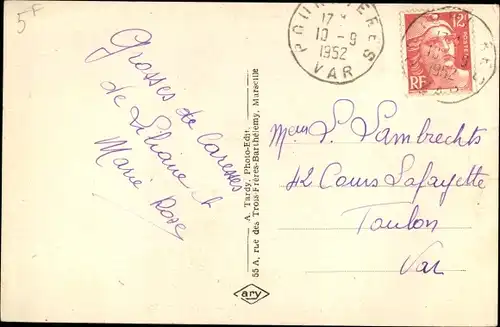 5F
Grosses de Caresses
de Liliane et
Marie Rose
A. Tardy, Photo-Edit.
55 A, rue des Trois-Frères-Barthélemy, Marseille
ary
10 - 9
1952
VAR
12F
POSTES
RF
1952
L. Lambrechts
42 Cours Lafayette
Toulon
Var